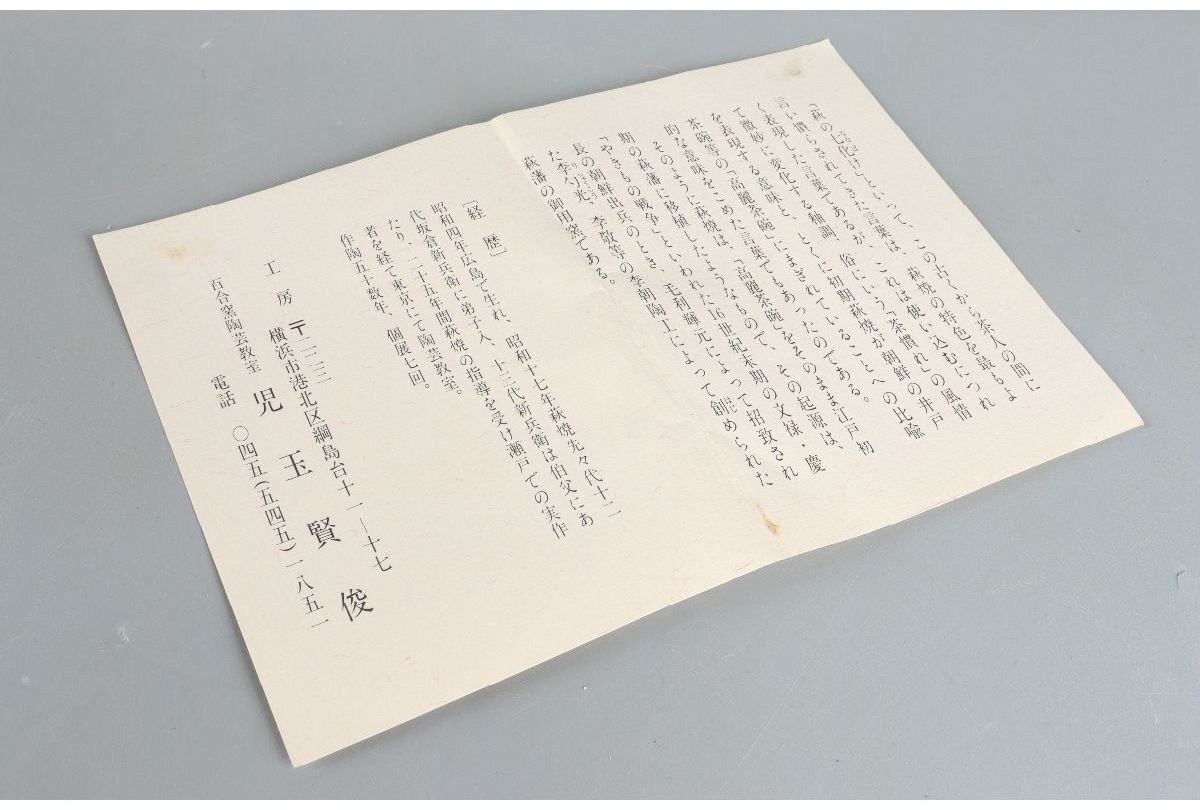 「萩の七化け」といって、この古くから茶人の間に
言い慣らされてきた言葉は、萩焼の特色を最もよ
く表現した言葉であるが、これは使い込むにつれ
て微妙に変化する釉調、俗にいう「茶慣れ」の風情
を表現する意味と、とくに初期萩焼が朝鮮の井戸
茶碗等の「高麗茶碗」にまぎれていることへの比喩
的な意味をこめた言葉でもあったのである。
そのように萩焼は、「高麗茶碗」をそのまま江戸初
期の萩藩に移植したようなもので、その起源は、
「やきもの戦争」といわれた16世紀末期の文禄・慶
長の朝鮮出兵のとき、毛利輝元によって招致され
た李勺光、李敬等の李朝陶工によって創められた
萩藩の御用窯である。
［経 歴］
昭和四年広島で生れ、昭和十七年萩焼先々代十二
代坂倉新兵衛に弟子入、十三代新兵衛は伯父にあ
たり、二十五年間萩焼の指導を受け瀬戸での実作
者を経て東京にて陶芸教室。
作陶五十数年、個展七回。
工 房 〒二二三 横浜市港北区綱島台十一―十七
児 玉 賢 俊
百合窯陶芸教室 電話 〇四五(五四五)一八五一